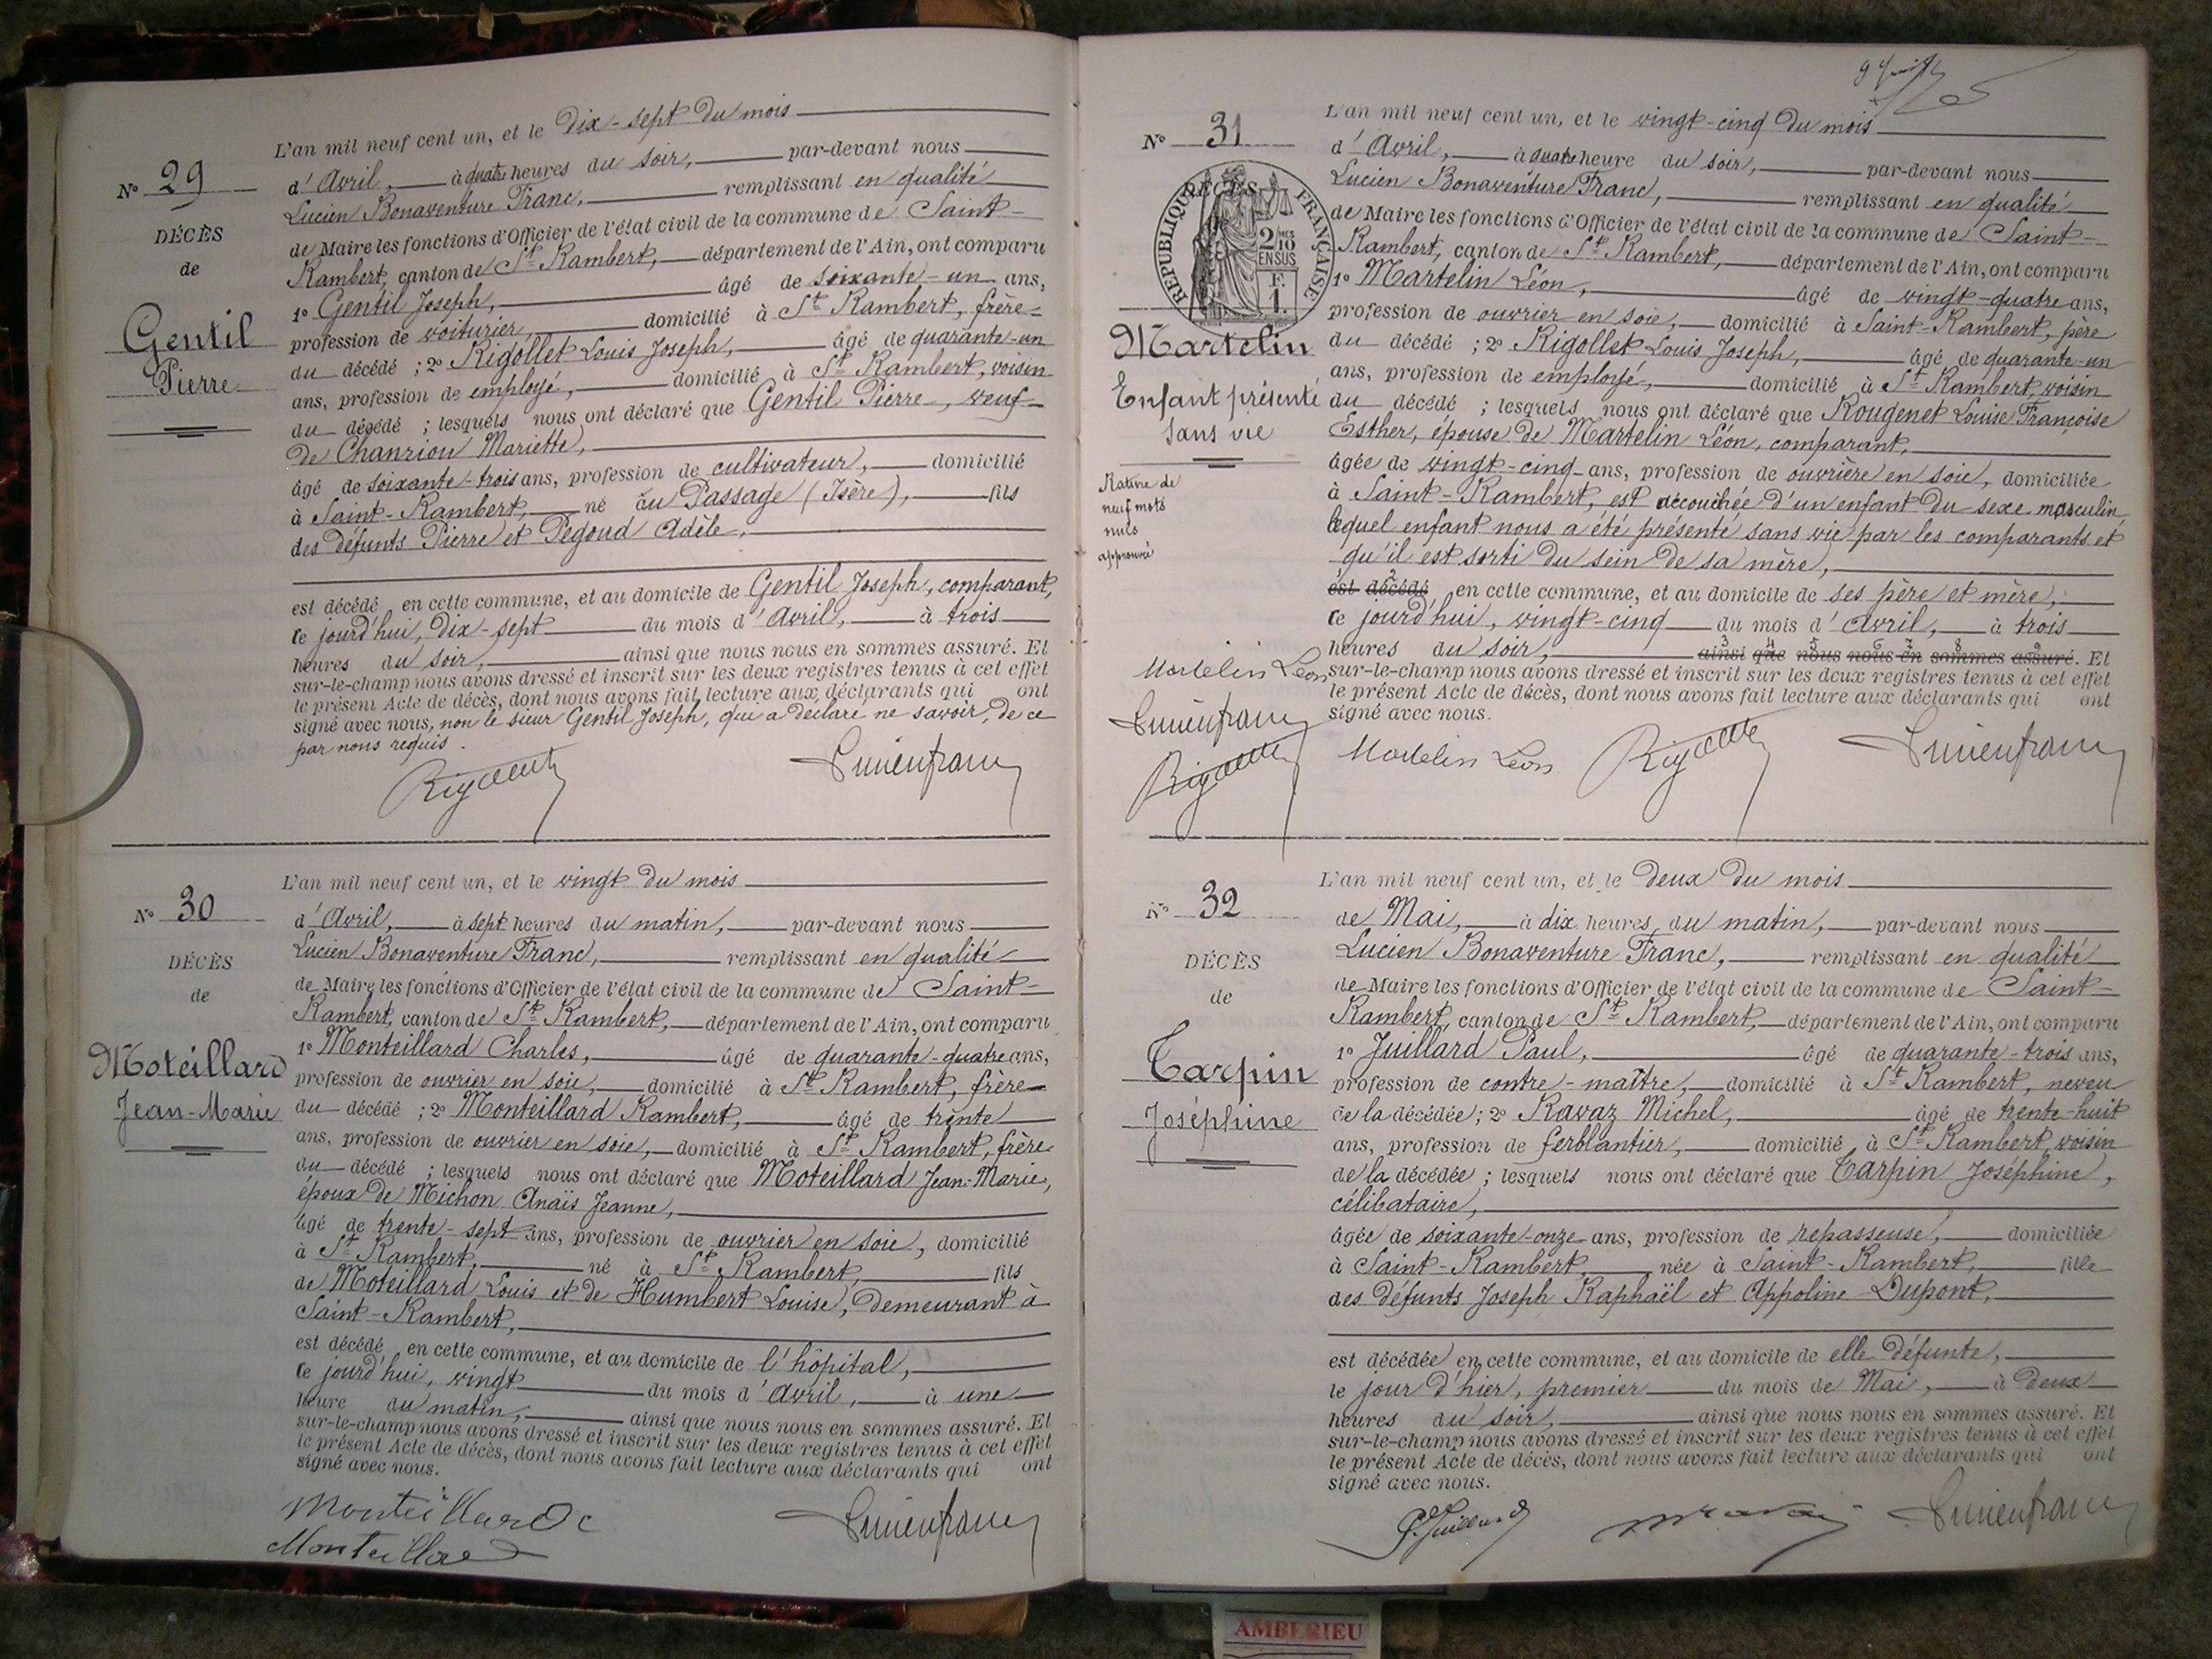 L'an mil neuf cent un, et le dix-sept du mois
N° 29
d'Avril, à quatre heures du soir, par-devant nous
Lucien Bonaventure Franc, remplissant en qualité
DÉCÈS
de Maire les fonctions d'Officier de l'état civil de la commune de Saint-
de
Rambert, canton de St Rambert, département de l'Ain, ont comparu
1° Gentil Joseph, âgé de soixante-un ans,
Gentil
profession de voiturier, domicilié à St Rambert, frère
Pierre
du décédé ; 2° Rigollet Louis Joseph, âgé de quarante-un
ans, profession de employé, domicilié à St Rambert, voisin
du décédé ; lesquels nous ont déclaré que Gentil Pierre, veuf
de Chanriou Mariette,
âgé de soixante-trois ans, profession de cultivateur, domicilié
à Saint-Rambert, né au Passage (Isère), fils
des défunts Pierre et Pegoud Adèle,
est décédé en cette commune, et au domicile de Gentil Joseph, comparant,
ce jourd'hui, dix-sept du mois d'Avril, à trois
heures du soir, ainsi que nous nous en sommes assuré. Et
sur-le-champ nous avons dressé et inscrit sur les deux registres tenus à cet effet
le présent Acte de décès, dont nous avons fait lecture aux déclarants qui ont
signé avec nous, non le sieur Gentil Joseph, qui a déclaré ne savoir, de ce
par nous requis.
Lucien franc
L'an mil neuf cent un, et le vingt du mois
N° 30
d'Avril, à sept heures du matin, par-devant nous
Lucien Bonaventure Franc, remplissant en qualité
DÉCÈS
de Maire les fonctions d'Officier de l'état civil de la commune de Saint-
de
Rambert, canton de St Rambert, département de l'Ain, ont comparu
1° Monteillard Charles, âgé de quarante-quatre ans,
Moteillard
profession de ouvrier en soie, domicilié à St Rambert, frère
Jean-Marie
du décédé ; 2° Monteillard Rambert, âgé de trente
ans, profession de ouvrier en soie, domicilié à St Rambert, frère
du décédé ; lesquels nous ont déclaré que Moteillard Jean-Marie,
époux de Michon Anaïs Jeanne,
âgé de trente-sept ans, profession de ouvrier en soie, domicilié
à St Rambert, né à St Rambert, fils
de Moteillard Louis et de Humbert Louise, demeurant à
Saint-Rambert,
est décédé en cette commune, et au domicile de l'hôpital,
ce jourd'hui, vingt du mois d'Avril, à une
heure du matin, ainsi que nous nous en sommes assuré. Et
sur-le-champ nous avons dressé et inscrit sur les deux registres tenus à cet effet
le présent Acte de décès, dont nous avons fait lecture aux déclarants qui ont
signé avec nous.
Monteillard C
Monteillard
Lucien franc
L'an mil neuf cent un, et le vingt-cinq du mois
N° 31
d'Avril, à quatre heure du soir, par-devant nous
Lucien Bonaventure Franc, remplissant en qualité
RÉPUBLIQUE FRANÇAISE
DÉCÈS
2 MES 10 EN SUS
F. 1.
de Maire les fonctions d'Officier de l'état civil de la commune de Saint-
Rambert, canton de St Rambert, département de l'Ain, ont comparu
1° Martelin Léon, âgé de vingt-quatre ans,
profession de ouvrier en soie, domicilié à Saint-Rambert, père
Martelin
du décédé ; 2° Rigollet Louis Joseph, âgé de quarante-un
ans, profession de employé, domicilié à St Rambert, voisin
Enfant présenté
sans vie
du décédé ; lesquels nous ont déclaré que Rougenet Louise Françoise
Esther, épouse de Martelin Léon, comparant,
âgée de vingt-cinq ans, profession de ouvrière en soie, domiciliée
Rature de
neuf mots
nuls
approuvé
à Saint-Rambert, est accouchée d'un enfant du sexe masculin
lequel enfant nous a été présenté sans vie par les comparants et
qu'il est sorti du sein de sa mère,
est décédé en cette commune, et au domicile de ses père et mère,
ce jourd'hui, vingt-cinq du mois d'avril, à trois
heures du soir, ainsi que nous nous en sommes assuré. Et
sur-le-champ nous avons dressé et inscrit sur les deux registres tenus à cet effet
le présent Acte de décès, dont nous avons fait lecture aux déclarants qui ont
signé avec nous.
Martelin Léon
Lucien franc
Martelin Léon
Lucien franc
L'an mil neuf cent un, et le deux du mois
N° 32
de Mai, à dix heures du matin, par-devant nous
Lucien Bonaventure Franc, remplissant en qualité
DÉCÈS
de Maire les fonctions d'Officier de l'état civil de la commune de Saint-
de
Rambert, canton de St Rambert, département de l'Ain, ont comparu
1° Juillard Paul, âgé de quarante-trois ans,
Tarpin
profession de contre-maître, domicilié à St Rambert, neveu
Joséphine
de la décédée ; 2° Ravaz Michel, âgé de trente-huit
ans, profession de ferblantier, domicilié à St Rambert, voisin
de la décédée ; lesquels nous ont déclaré que Tarpin Joséphine,
célibataire,
âgée de soixante-onze ans, profession de repasseuse, domiciliée
à Saint-Rambert, née à Saint-Rambert, fille
des défunts Joseph Raphaël et Appoline Dupont,
est décédée en cette commune, et au domicile de elle défunte,
le jour d'hier, premier du mois de Mai, à deux
heures du soir, ainsi que nous nous en sommes assuré. Et
sur-le-champ nous avons dressé et inscrit sur les deux registres tenus à cet effet
le présent Acte de décès, dont nous avons fait lecture aux déclarants qui ont
signé avec nous.
P. Juillard
Lucien franc
AMBERIEU